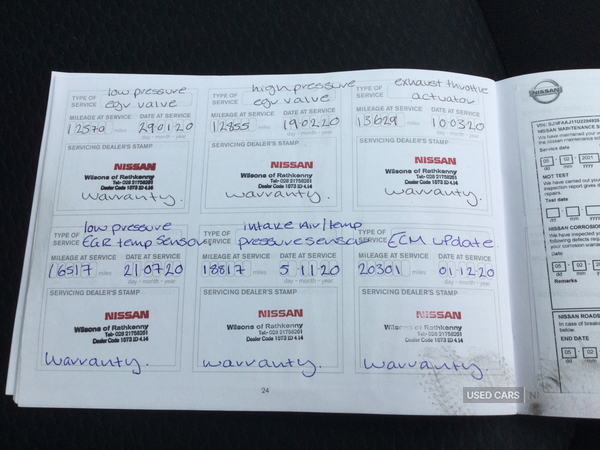 low pressure
TYPE OF SERVICE egr valve
MILEAGE AT SERVICE DATE AT SERVICE
12570 miles 29 01 20
day - month - year
SERVICING DEALER'S STAMP
NISSAN
Wilsons of Rathkenny
Tel:- 028 21758251
Dealer Code 1073 ID 4.14
warranty.
high pressure
TYPE OF SERVICE egr valve
MILEAGE AT SERVICE DATE AT SERVICE
12855 miles 19 02 20
day - month - year
SERVICING DEALER'S STAMP
NISSAN
Wilsons of Rathkenny
Tel:- 028 21758251
Dealer Code 1073 ID 4.14
warranty.
exhaust throttle
TYPE OF SERVICE actuator
MILEAGE AT SERVICE DATE AT SERVICE
13629 miles 10 03 20
day - month - year
SERVICING DEALER'S STAMP
NISSAN
Wilsons of Rathkenny
Tel:- 028 21758251
Dealer Code 1073 ID 4.14
warranty.
low pressure
TYPE OF SERVICE EGR temp Sensor
MILEAGE AT SERVICE DATE AT SERVICE
16517 miles 21 07 20
day - month - year
SERVICING DEALER'S STAMP
NISSAN
Wilsons of Rathkenny
Tel:- 028 21758251
Dealer Code 1073 ID 4.14
warranty.
intake Air/temp
TYPE OF SERVICE pressure sensor
MILEAGE AT SERVICE DATE AT SERVICE
18817 miles 5 11 20
day - month - year
SERVICING DEALER'S STAMP
NISSAN
Wilsons of Rathkenny
Tel:- 028 21758251
Dealer Code 1073 ID 4.14
warranty.
TYPE OF SERVICE ECM update
MILEAGE AT SERVICE DATE AT SERVICE
20301 miles 01 12 20
day - month - year
SERVICING DEALER'S STAMP
NISSAN
Wilsons of Rathkenny
Tel:- 028 21758251
Dealer Code 1073 ID 4.14
warranty.
24
NISSAN
NISSAN MAINTENANCE
We have maintained your
the nissan maintenance
Service date
05 02 2021
dd mm yyyy
MOT TEST
We have carried out your
inspection report gives
repairs.
Test date
dd mm yyyy
NISSAN CORROSION
We have inspected
following defects
your corrosion
Date
05 02
dd mm
Remarks
NISSAN ROADS
In case of break
below.
END DATE
05 02
dd mm
USED CARS NI